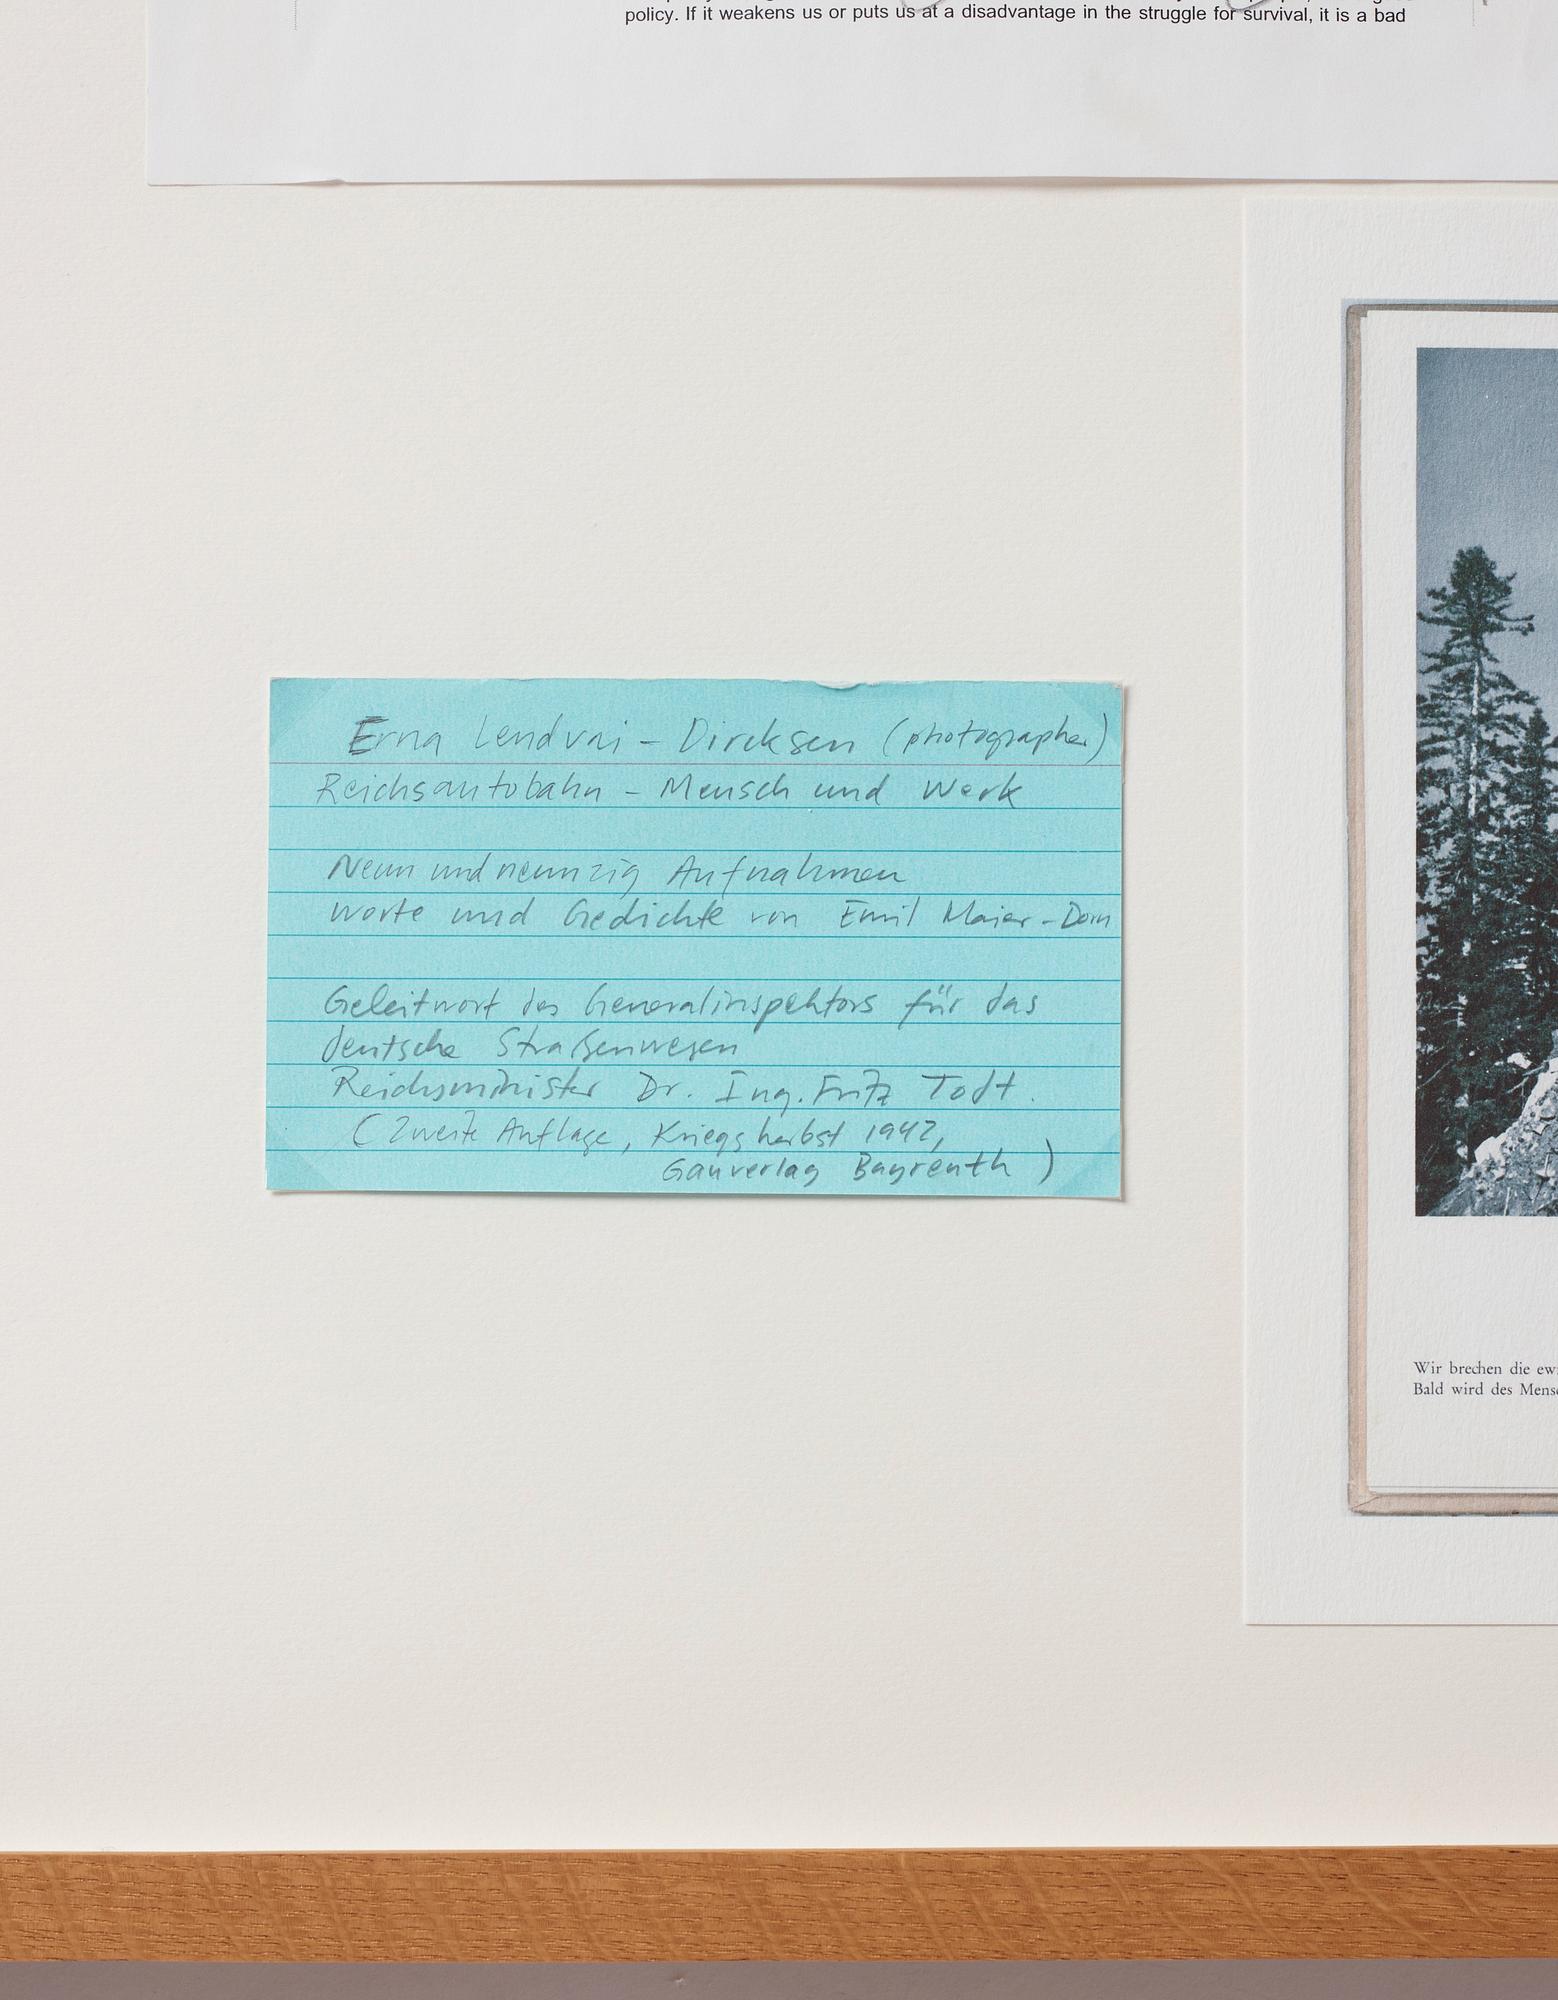 policy. If it weakens us or puts us at a disadvantage in the struggle for survival, it is a bad
Erna Lendvai - Dircksen (photographer)
Reichsautobahn - Mensch und Werk
Neun und neunzig Aufnahmen
Worte und Gedichte von Emil Maier-Dorn
Geleitwort des Generalinspektors für das
deutsche Straßenwesen
Reichsminister Dr. Ing. Fritz Todt.
(Zweite Auflage, Kriegsherbst 1942,
Gauverlag Bayreuth)
Wir brechen die
Bald wird des